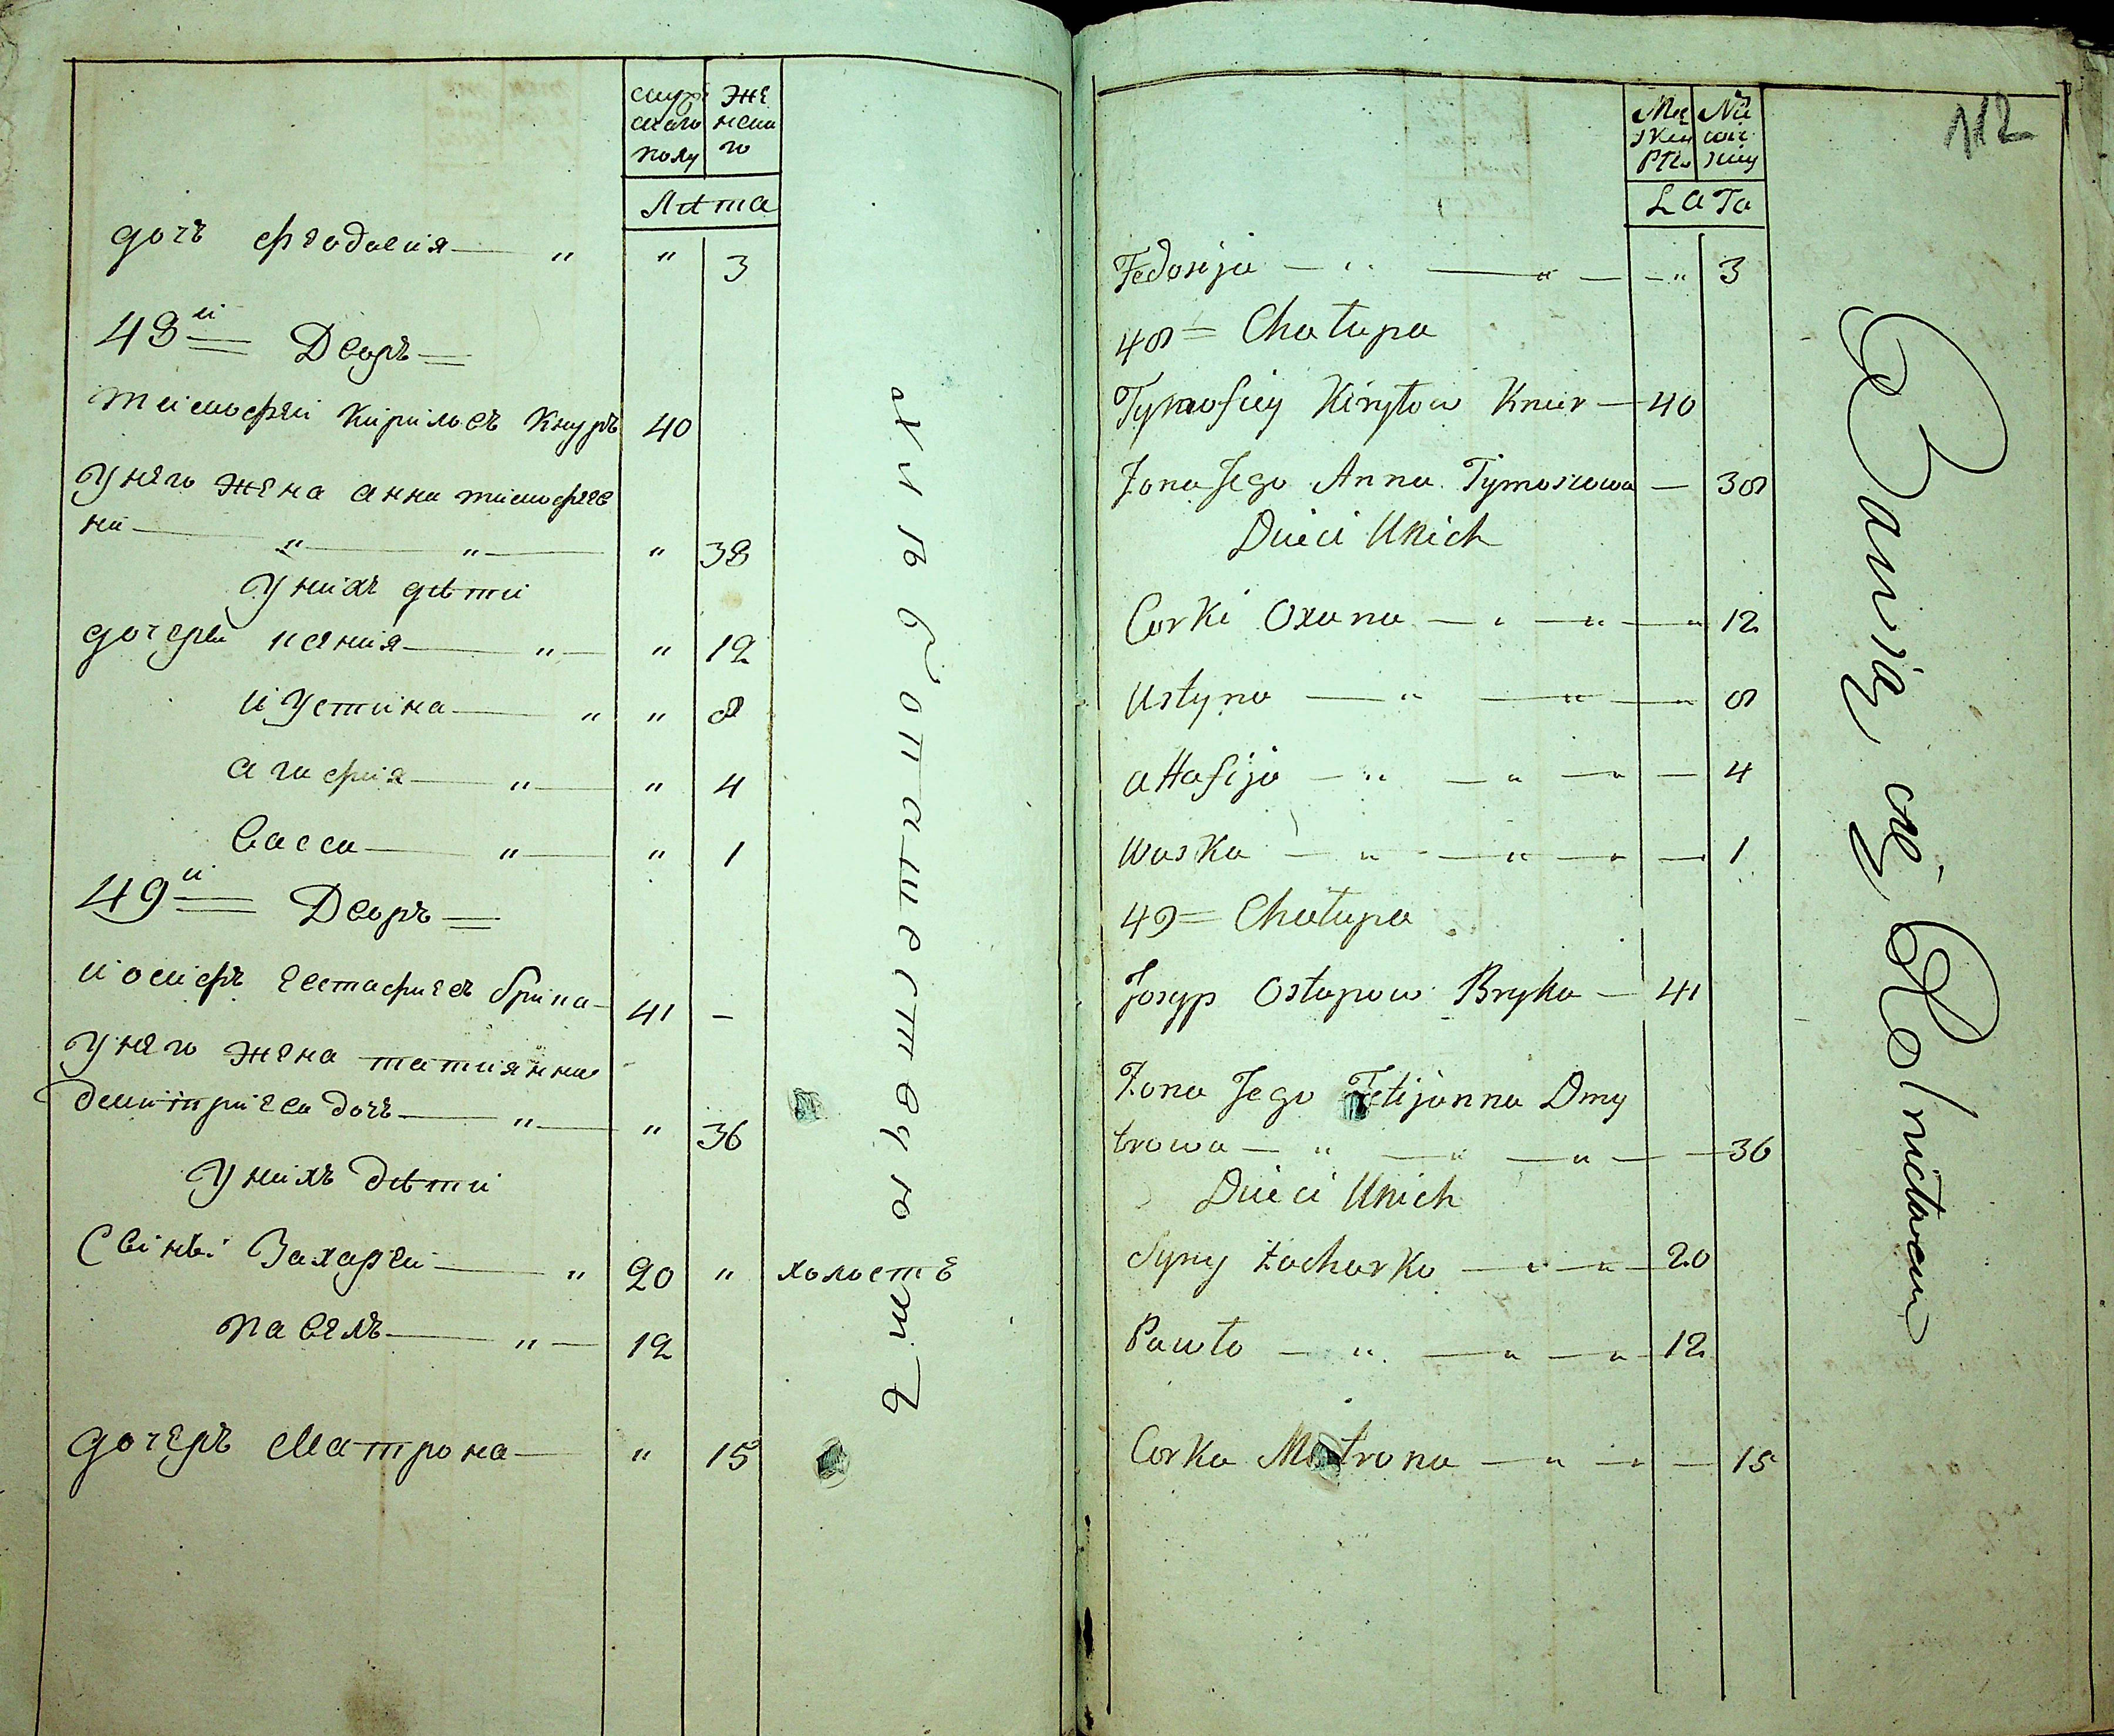 мужескаго полу
женскаго
Лѣта
дочь Феодосия — " " 3
48й Дворъ
Тимофей Кирилов Кнуръ 40
У него жена Анна Тимофѣе
ва — " — " " 38
У нихъ дѣти
дочери Ксения — " " 12
Иустина — " " 8
Агафия — " " 4
Васса — " " 1
49й Дворъ
Иосифъ Евстафиевъ Брика 41 —
У него жена Татиянна
Димитриева дочь — " " 36
У нихъ дѣти
Сыны Захарей — " 20 " холостъ
Павелъ — " 12
дочерь Матрона — " 15
живут
112
Męzkiey Płci
Niewieściey
Lata
Fedosija — " — " — " 3
48 = Chałupa
Tymofiey Kiryłow Knur — 40
Zona Jego Anna Tymoszowa — 38
Dzieci Unich
Corki Oxana — " — " — " 12
Ustyna — " — " — " 8
Attafija — " — " — " — 4
Waska — " — " — " — 1
49 = Chałupa
Josyp Ostapow Bryka — 41
Zona Jego Tetijanna Dmy
trowa — " — " — " — 36
Dzieci Unich
Syny Zacharko — " — " 20
Pawło — " — " — " 12
Corka Motrona — " — " — 15
Bawią się Rolnictwem